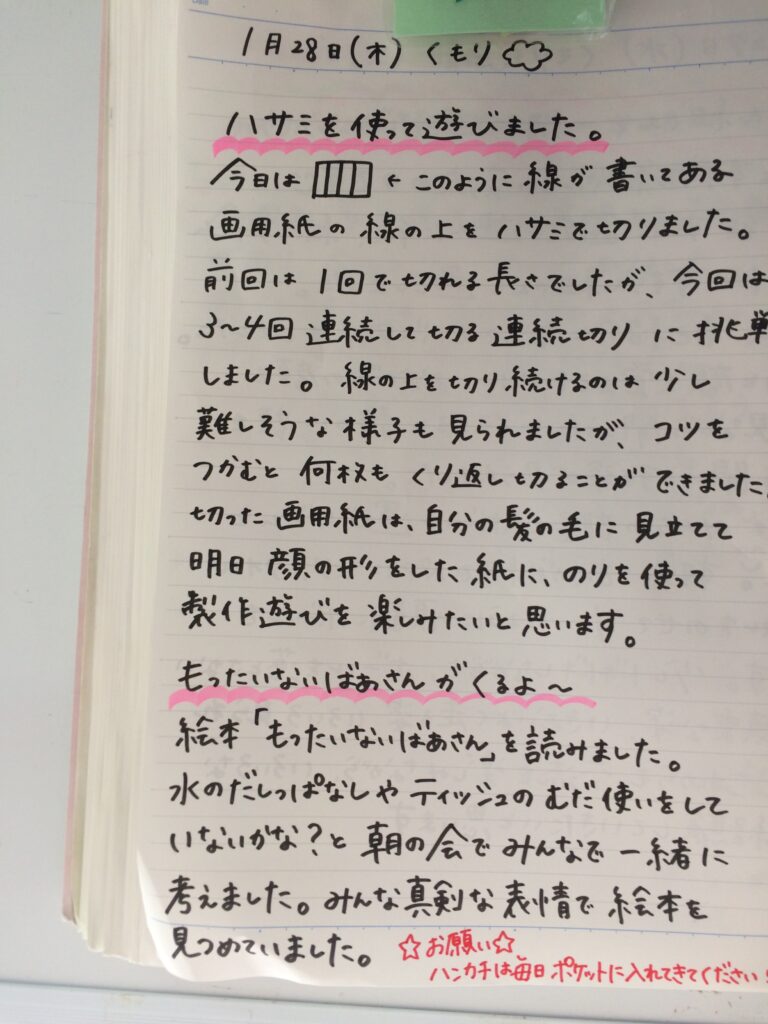 1月28日(木) くもり
ハサミを使って遊びました。
今日は ← このように 線が 書いてある
画用紙の 線の上を ハサミで切りました。
前回は 1回で切れる長さでしたが、今回は
3〜4回 連続して切る 連続切り に 挑戦
しました。 線の上を切り続けるのは 少し
難しそうな 様子も 見られましたが、コツを
つかむと 何枚も くり返し 切ることが できました。
切った 画用紙は、自分の髪の毛に 見立てて
明日 顔の形をした 紙に、のりを使って
製作遊びを 楽しみたいと 思います。
もったいないばあさんがくるよ〜
絵本「もったいないばあさん」を読みました。
水のだしっぱなしや ティッシュの むだ使いをして
いないかな?と 朝の会で みんなで 一緒に
考えました。みんな真剣な 表情で 絵本を
見つめていました。
☆お願い☆
ハンカチは毎日 ポケットに入れてきてください